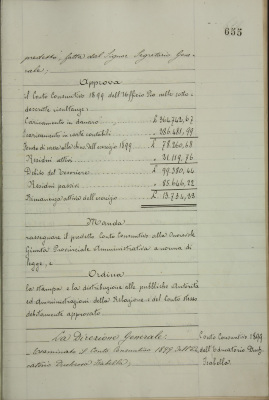 655
predetto fatta dal Signor Segretario Gene-
rale;
Approva
il Conto Consuntivo 1899 dell'Ufficio Pio nelle sotto-
descritte risultanze:
Caricamento in danaro £ 364.742,67
Scaricamento in carte contabili " 286.481,99
Fondo di cassa alla chiusa dell'esercizio 1899 £ 78.260,68
Residui attivi " 21.119,76
Debito del Tesoriere £ 99.380,44
Residui passivi " 85.646,22
Rimanenza attiva dell'esercizio £ 13.734,22
Manda
rassegnare il predetto Conto Consuntivo alla Onorevole
Giunta Provinciale Amministrativa a norma di
legge, e
Ordina
la stampa e la distribuzione alle pubbliche Autorità
ed Amministrazioni della Relazione e del Conto stesso
debitamente approvato.
La Direzione Generale:
Esaminato il Conto Consuntivo 1899 dell'Edu-
catorio Duchessa Isabella;
Conto Consuntivo 1899
dell'Educatorio Duch.
Isabella